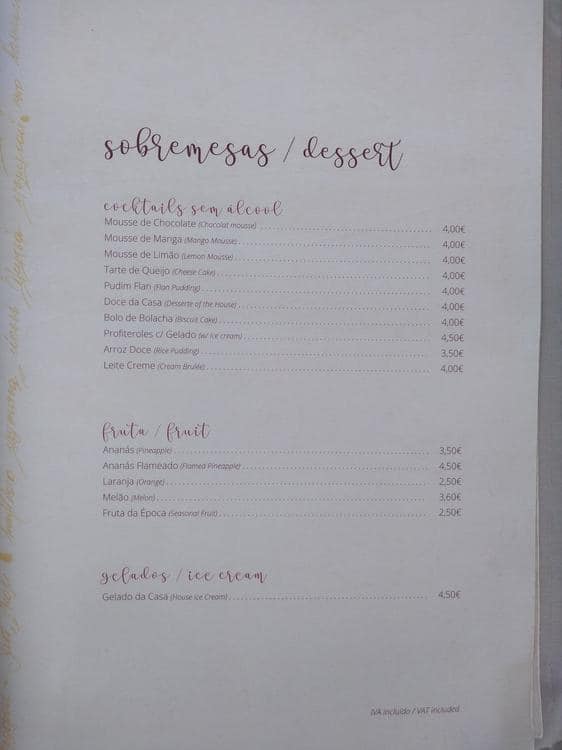 sobremesas / dessert
cocktails sem álcool
Mousse de Chocolate (Chocolat mousse) 4,00€
Mousse de Manga (Mango Mousse) 4,00€
Mousse de Limão (Lemon Mousse) 4,00€
Tarte de Queijo (Cheese Cake) 4,00€
Pudim Flan (Flan Pudding) 4,00€
Doce da Casa (Desserte of the House) 4,00€
Bolo de Bolacha (Biscuit Cake) 4,00€
Profiteroles c/ Gelado (w/ ice cream) 4,50€
Arroz Doce (Rice Pudding) 3,50€
Leite Creme (Cream Brulée) 4,00€
fruta / fruit
Ananás (Pineapple) 3,50€
Ananás Flameado (Flamed Pineapple) 4,50€
Laranja (Orange) 2,50€
Melão (Melon) 3,60€
Fruta da Época (Seasonal Fruit) 2,50€
gelados / ice cream
Gelado da Casa (House Ice Cream) 4,50€
IVA incluído / VAT included